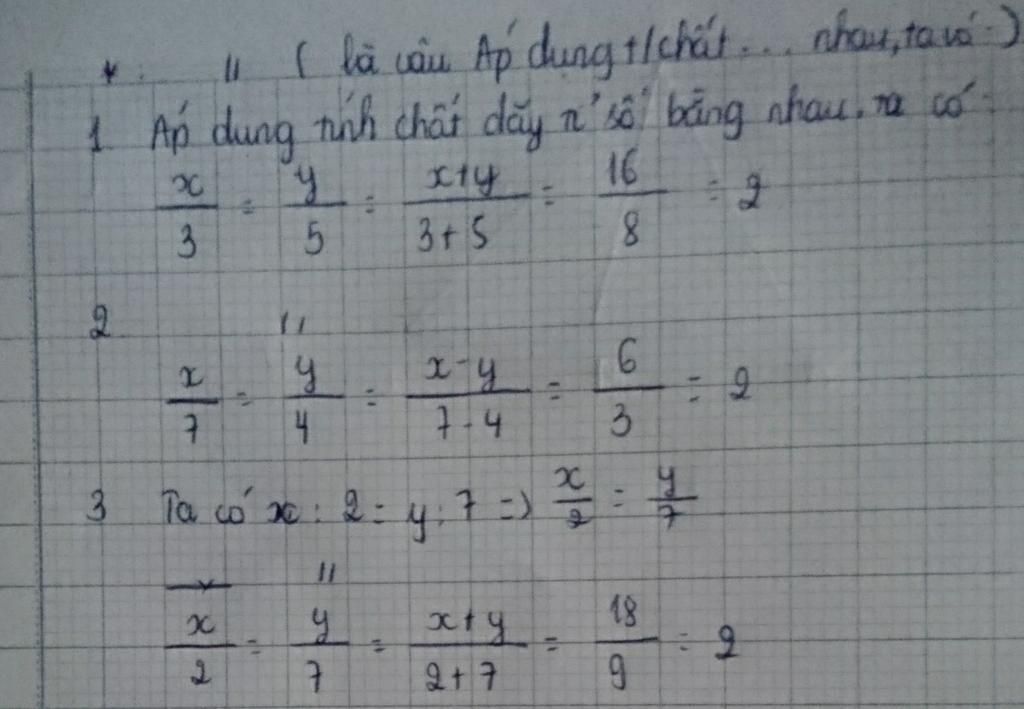 * : " ( là câu Áp dụng t/chất... nhau, ta có:)
1 Áp dụng tính chất dãy tỉ số bằng nhau, ta có:
x/3 = y/5 = x+y/3+5 = 16/8 = 2
2 "
x/7 = y/4 = x-y/7-4 = 6/3 = 2
3 Ta có x : 2 = y : 7 => x/2 = y/7
"
x/2 = y/7 = x+y/2+7 = 18/9 = 2